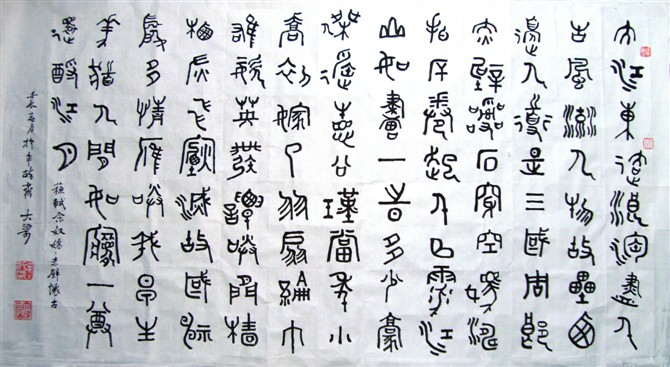 大江東去浪淘盡千
古風流人物故壘西
邊人道是三國周郎
赤壁亂石穿空驚濤
拍岸捲起千堆雪江
山如畫一時多少豪
傑遙想公瑾當年小
喬初嫁了羽扇綸巾
雄姿英發談笑間檣
櫓灰飛煙滅故國神
遊多情應笑我早生
華髮人間如夢一尊
還酹江月
蘇軾念奴嬌赤壁懷古
壬辰